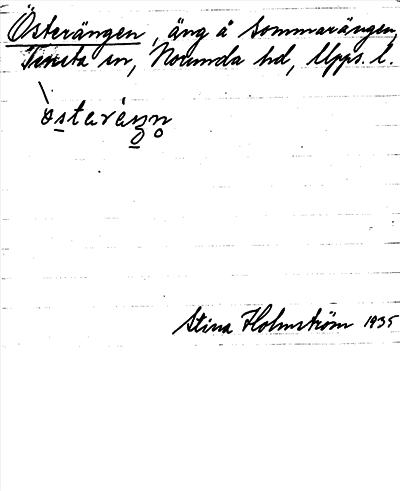 Österängen, äng å Sommarängen,
Tensta sn, Norunda hd, Upps. l.
òstaráŋn̥
Stina Holmström 1935